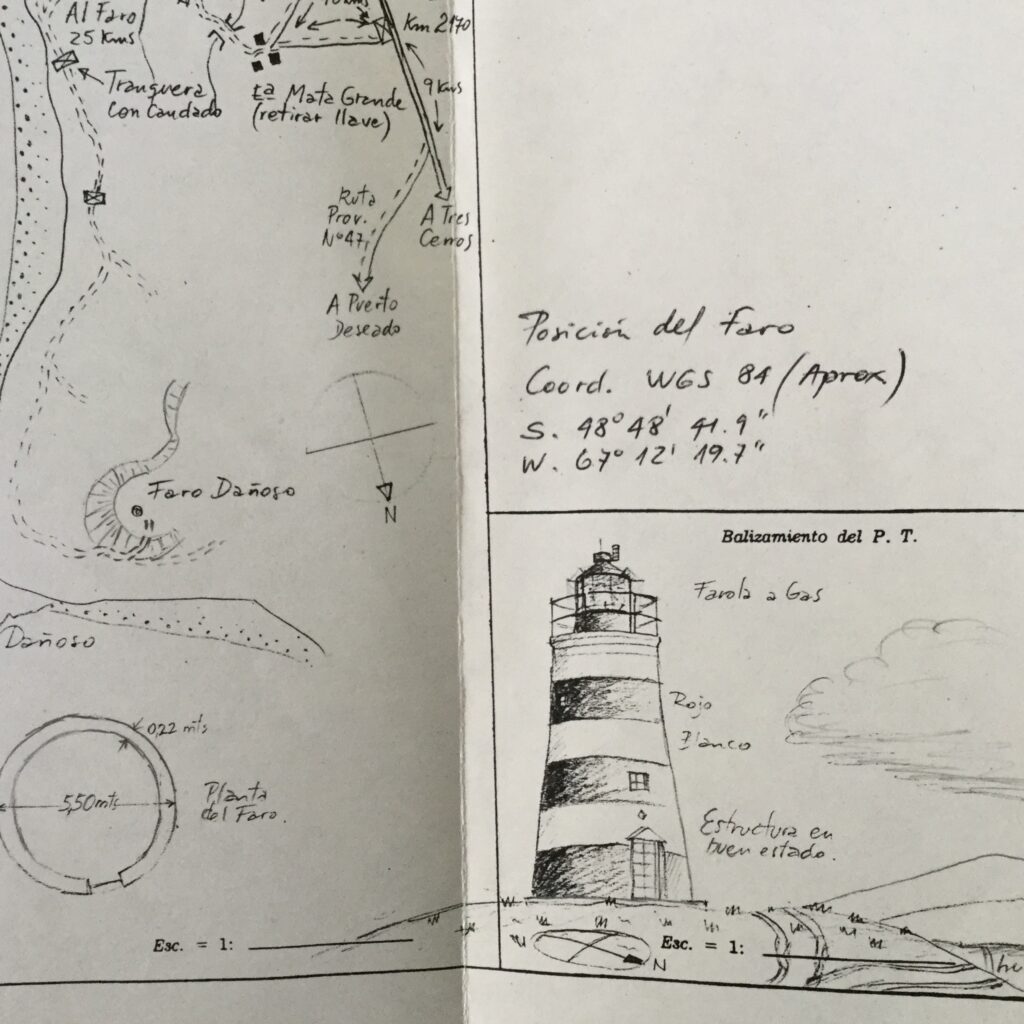 Al Faro
25 Kms
Tranquera
Con Candado
10 Kms
Km 2170
Ea Mata Grande
(retirar llave)
9 Kms
Ruta
Prov.
Nº 47
A Tres
Cerros
A Puerto
Deseado
N
Faro Dañoso
Dañoso
0,22 mts
5,50 mts
Planta
del Faro.
Esc. = 1:
Posición del Faro
Coord. WGS 84 (Aprox)
S. 48° 48' 41.9"
W. 67° 12' 19.7"
Balizamiento del P. T.
Farola a Gas
Rojo
Blanco
Estructura en
buen estado.
Esc. = 1:
N